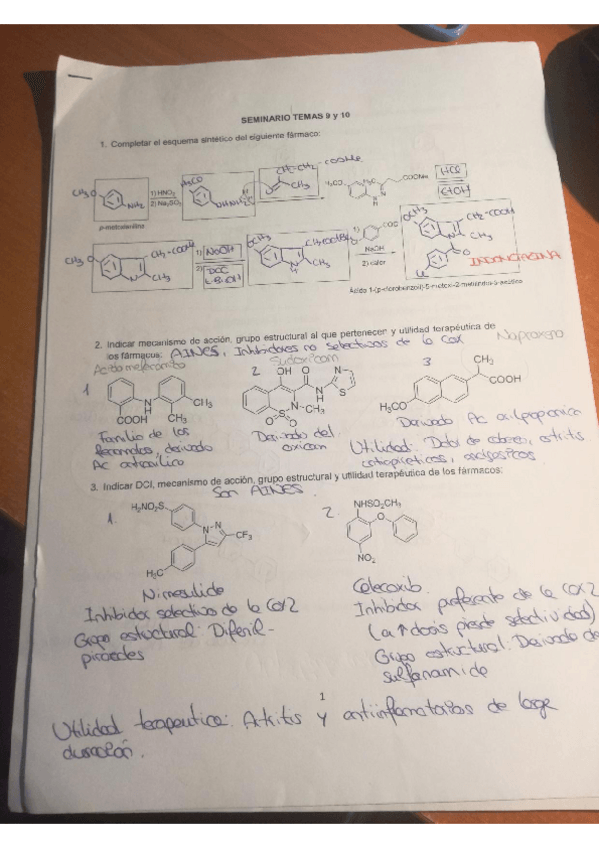 SEMINARIO TEMAS 9 y 10
1. Completar el esquema sintético del siguiente fármaco:
CH-CH2-COOMe
CH3O
NH2
1) HNO2
2) Na2SO3
H3CO
CH3
H3CO
H3C
COOMe
HCl
EtOH
p-metoxianilina
CH3O
CH2-COOH
CH3
1) NaOH
2) DCC
t-BuOH
OCH3
CH3
1)
COCl
NaOH
2) calor
OCH3
CH2-COOH
CH3
Cl
INDOMETACINA
Ácido 1-(p-clorobenzoil)-5-metoxi-2-metilindol-3-acético
2. Indicar mecanismo de acción, grupo estructural al que pertenecen y utilidad terapéutica de
los fármacos: AINES, Inhibidores no selectivos de la COX
Naproxeno
Sudoxicam
1
2
3
N
H
COOH
CH3
CH3
OH
O
N
H
N
S
N
CH3
S
O
O
CH3
COOH
H3CO
Familia de los
fenamatos, derivado
Ac antranílico
Derivado del
oxicam
Derivado Ac arilpropionico
Utilidad: Dolor de cabeza, artritis
antipiréticos, analgésicos
3. Indicar DCI, mecanismo de acción, grupo estructural y utilidad terapéutica de los fármacos:
Son AINES.
1.
H2NO2S
N
N
CF3
H3C
2.
NHSO2CH3
O
NO2
Nimesulide
Inhibidor selectivo de la COX2
Grupo estructural: Difenil-
Celecoxib
Inhibidor preferente de la COX2
(a ↑ dosis pierde selectividad)
Grupo estructural: Derivado de
sulfonamida
1
Utilidad terapeutica: Artritis y antiinflamatorios de larga
duración.